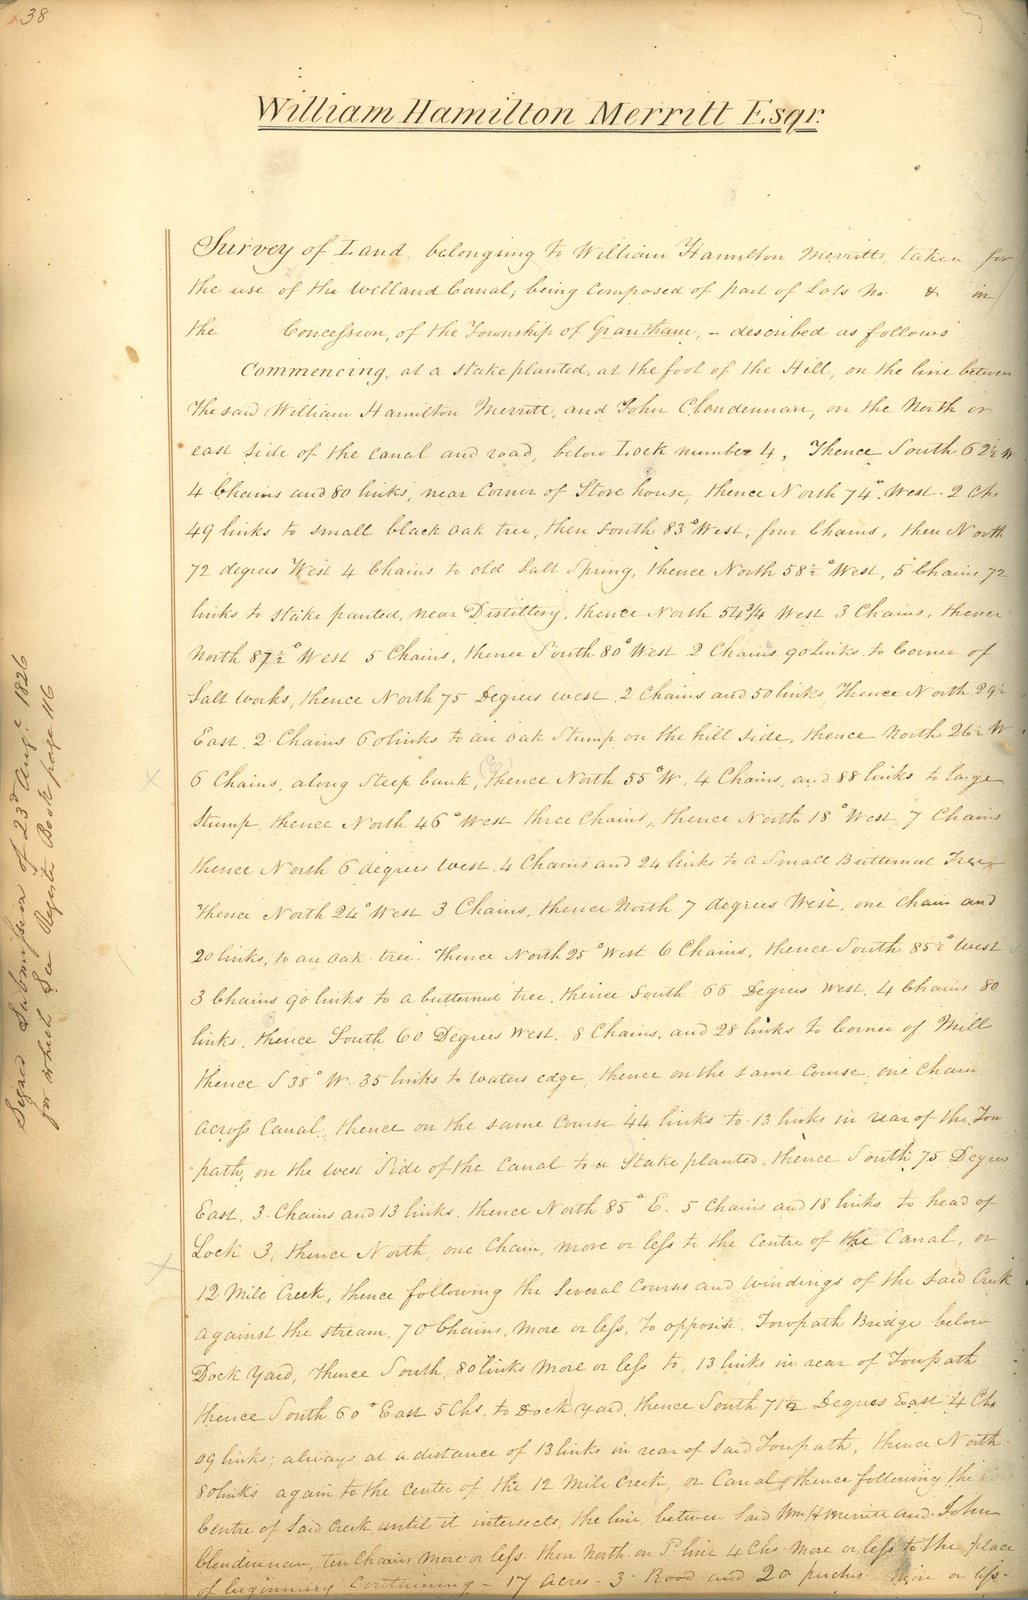 38
William Hamilton Merritt Esqr.
Survey of Land, belonging to William Hamilton Merritt, taken for
the use of the Welland Canal, being composed of part of Lots No. & in
the Concession, of the Township of Grantham, - described as follows
Commencing, at a stake planted, at the foot of the Hill, on the line between
The said William Hamilton Merritt, and John Clendennan, on the North or
east side of the canal and road, below Lock number 4, Thence South 62½ W
4 Chains and 80 links, near Corner of Store house, thence North 74° West. 2 Chs
49 links to small black oak tree, then South 83° West, four Chains, then North
72 degrees West 4 Chains to old Salt Spring, thence North 58½° West, 5 Chains 72
links to stake panted, near Distillery, thence North 54 3/4 West 3 Chains, thence
North 87½° West 5 Chains, thence South 80° West 2 Chains 90 links to Corner of
Salt works, thence North 75 Degrees west. 2 Chains and 50 links Thence North 29½
East. 2 Chains 60 links to an oak Stump on the hill side, thence North 26½ W
6 Chains, along Steep bank, thence North 55° W. 4 Chains, and 88 links to large
Stump, thence North 46° West three Chains, thence North 18° West 7 Chains
thence North 6 degrees west. 4 Chains and 24 links to a Small Butternut Tree
Thence North 24° West 3 Chains, thence North 7 degrees West, one chain and
20 links, to an oak tree. Thence North 25° West 6 Chains, thence South 85½° West
3 Chains 90 links to a butternut tree, thence South 66 Degrees West. 4 Chains 80
links, thence South 60 Degrees West. 8 Chains, and 28 links to Corner of Mill
thence S 38° W. 35 links to waters edge, thence on the same course, one Chain
across Canal, thence on the same Course 44 links to 13 links in rear of the Tow
path, on the west Side of the Canal to a Stake planted, thence South 75 Degrees
East, 3 Chains and 13 links. thence North 85° E. 5 Chains and 18 links to head of
Lock 3, thence North, one Chain, more or less to the Centre of the Canal, or
12 Mile Creek, thence following the Several Courses and windings of the said Creek
against the stream, 70 Chains, more or less, to opposite, Towpath Bridge below
Dock Yard, thence South, 80 links more or less to, 13 links in rear of Towpath
thence South 60° East 5 Chs. to Dock Yard, thence South 71½ Degrees East 4 Chs
09 links; always at a distance of 13 links in rear of said Towpath, thence North
80 links again to the center of the 12 Mile Creek, or Canal, thence following the
Centre of said Creek until it intersects, the line, between Said Wm H Merritt and John
Clendennan, ten Chains, more or less. then North on Sd. line 4 Chs. more or less to the place
of beginning Containing - 17 acres - 3 Rood and 20 perches more or less.
Signed Submission of 23d Augt. 1826
for which See Register Book page 116